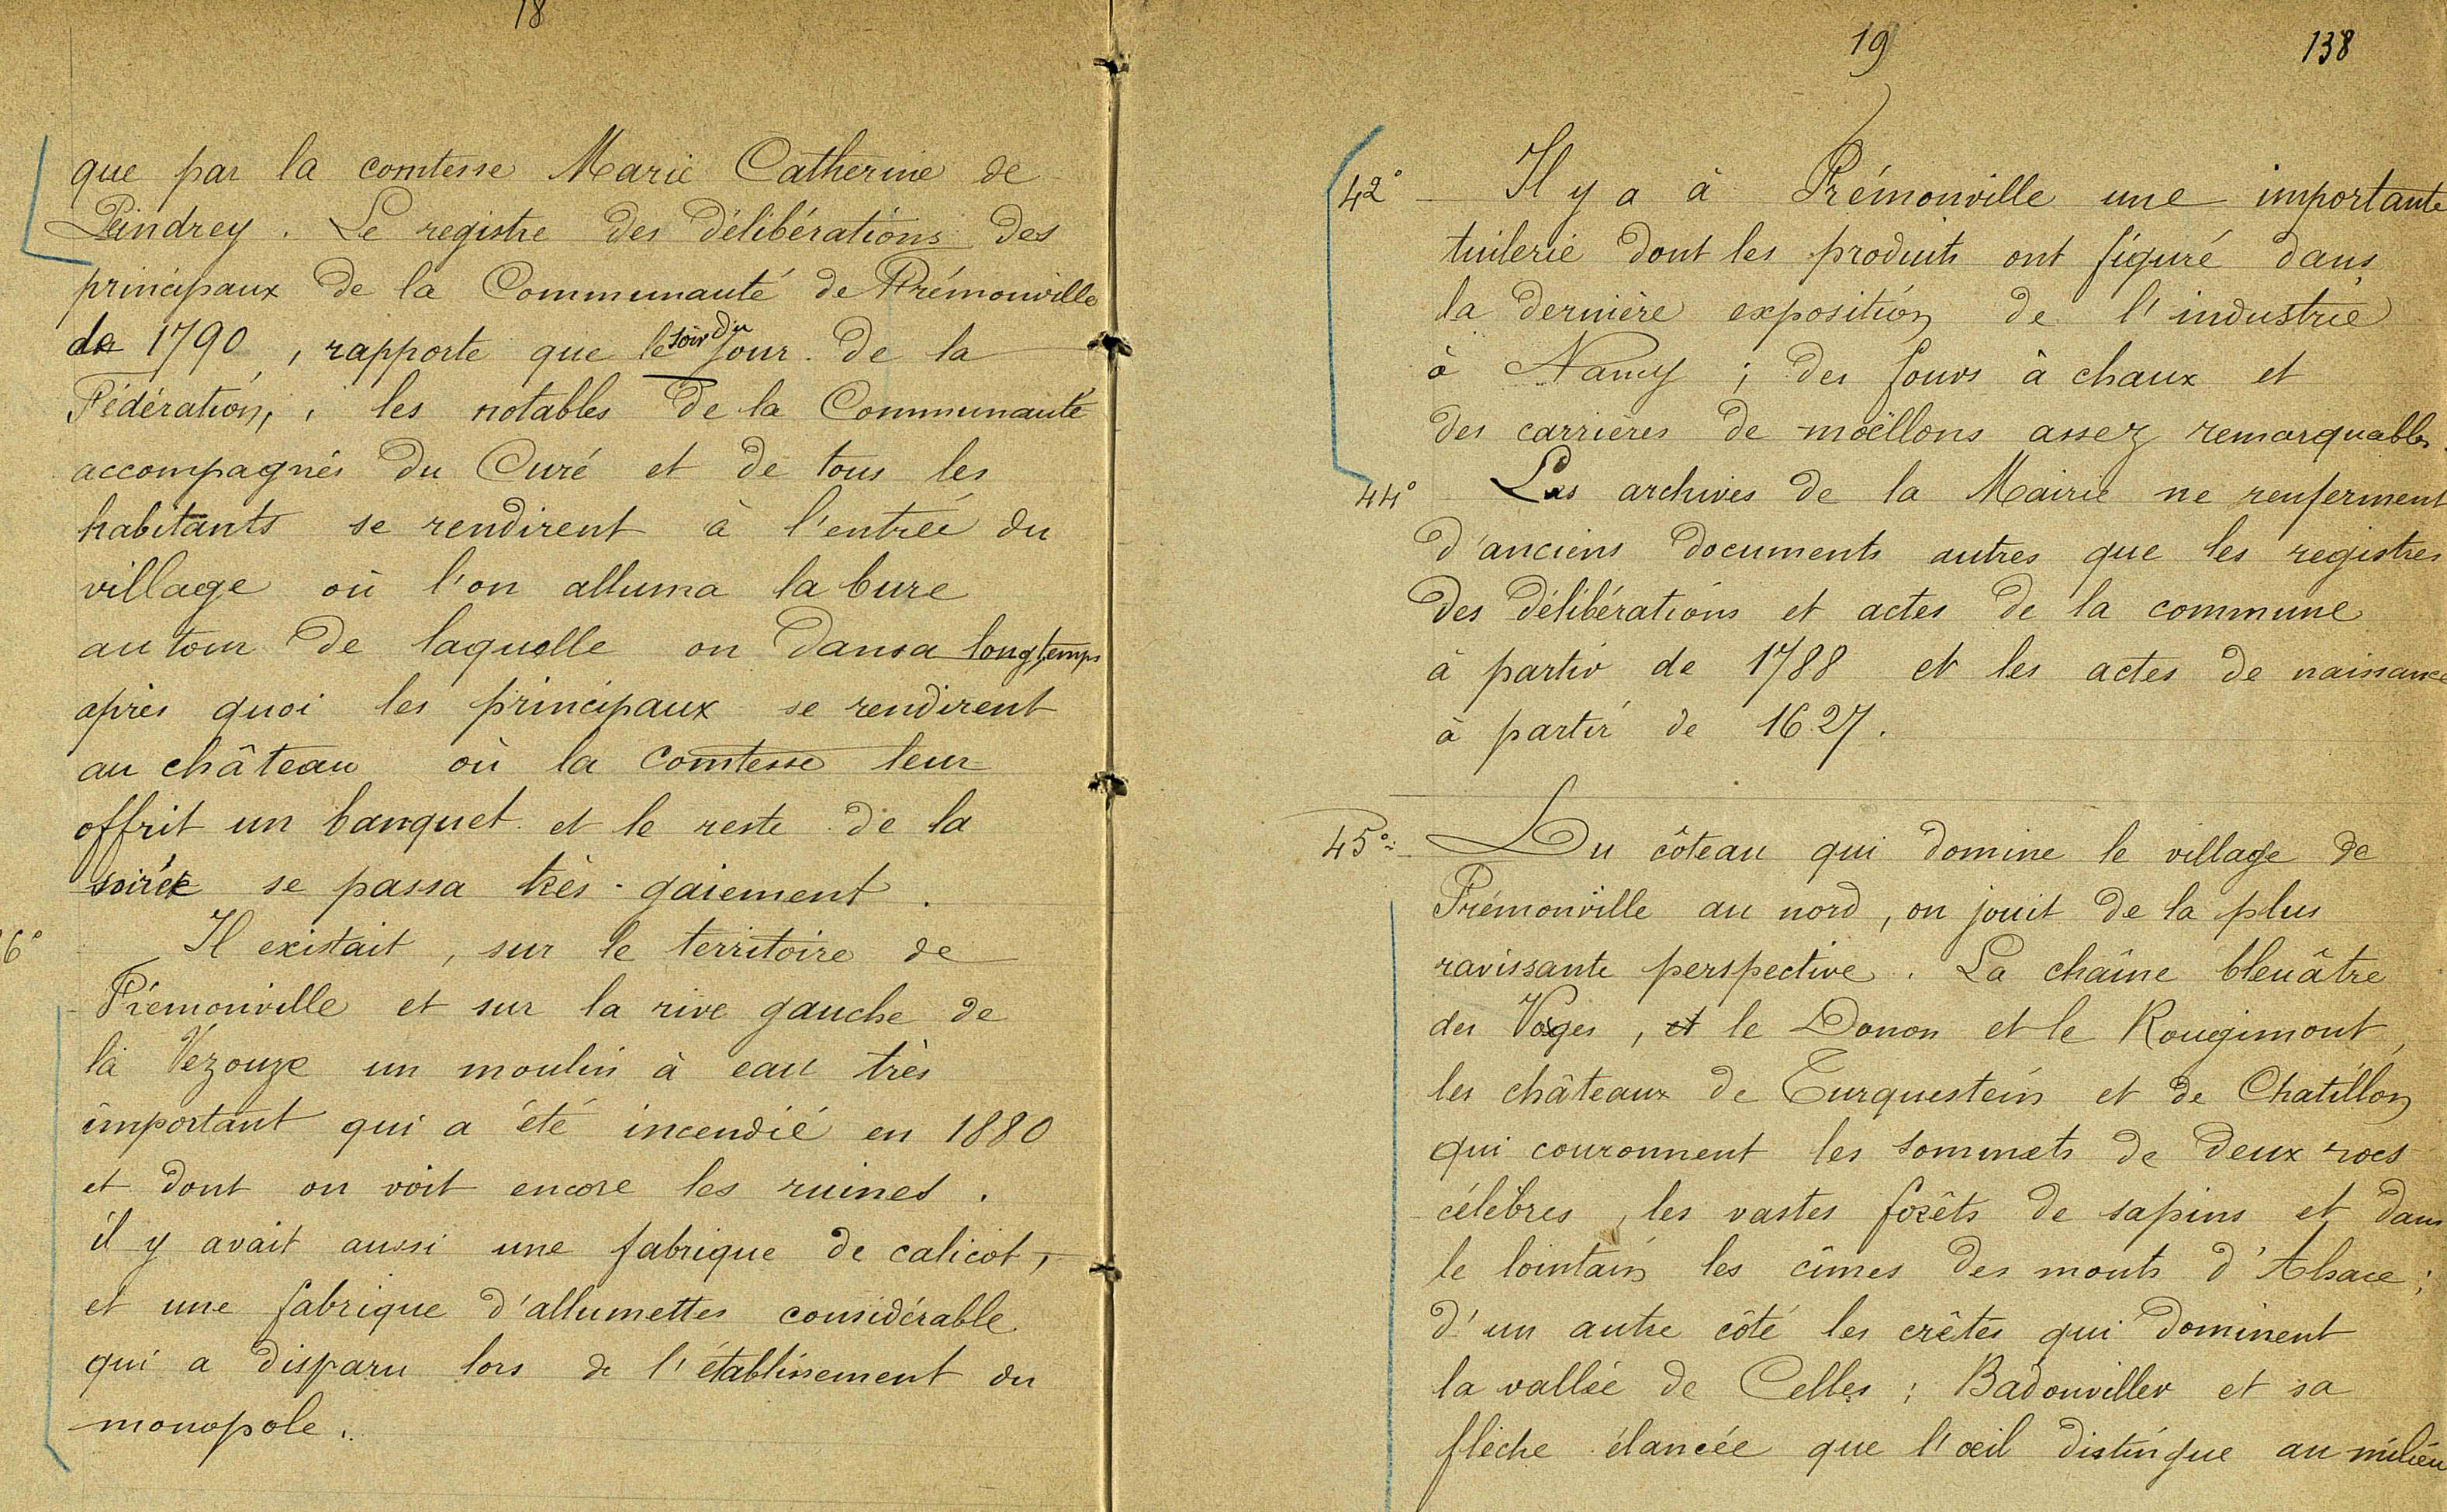 18
que par la comtesse Marie Catherine de
Peindrey. Le registre des délibérations des
principaux de la Communauté de Frémonville
de 1790, rapporte que le soir du jour de la
Fédération, les notables de la Communauté
accompagnés du Curé et de tous les
habitants se rendirent à l'entrée du
village où l'on alluma la bure
au tour de laquelle on dansa longtemps
après quoi les principaux se rendirent
au château où la comtesse leur
offrit un banquet et le reste de la
soirée se passa très-gaiement.
6° Il existait, sur le territoire de
Frémonville et sur la rive gauche de
la Vezouze un moulin à eau très
important qui a été incendié en 1880
et dont on voit encore les ruines.
il y avait aussi une fabrique de calicot,
et une fabrique d'allumettes considérable
qui a disparu lors de l'établissement du
monopole.
19
138
42° Il y a à Frémonville une importante
tuilerie dont les produits ont figuré dans
la dernière exposition de l'industrie
à Nancy ; des fours à chaux et
des carrières de moëllons assez remarquables.
44° Les archives de la Mairie ne renferment
d'anciens documents autres que les registres
des délibérations et actes de la commune
à partir de 1788 et les actes de naissance
à partir de 1627.
45° Du côteau qui domine le village de
Frémonville au nord, on jouit de la plus
ravissante perspective. La chaîne bleuâtre
des Vosges, et le Donon et le Rougimont,
les châteaux de Turquestein et de Chatillon
qui couronnent les sommets de deux rocs
célèbres, les vastes forêts de sapins et dans
le lointain les cîmes des monts d'Alsace ;
d'un autre côté les crêtes qui dominent
la vallée de Celles ; Badonviller et sa
flèche élancée que l'œil distingue au milieu